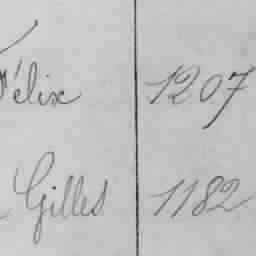 Félix 1207
Gilles 1182